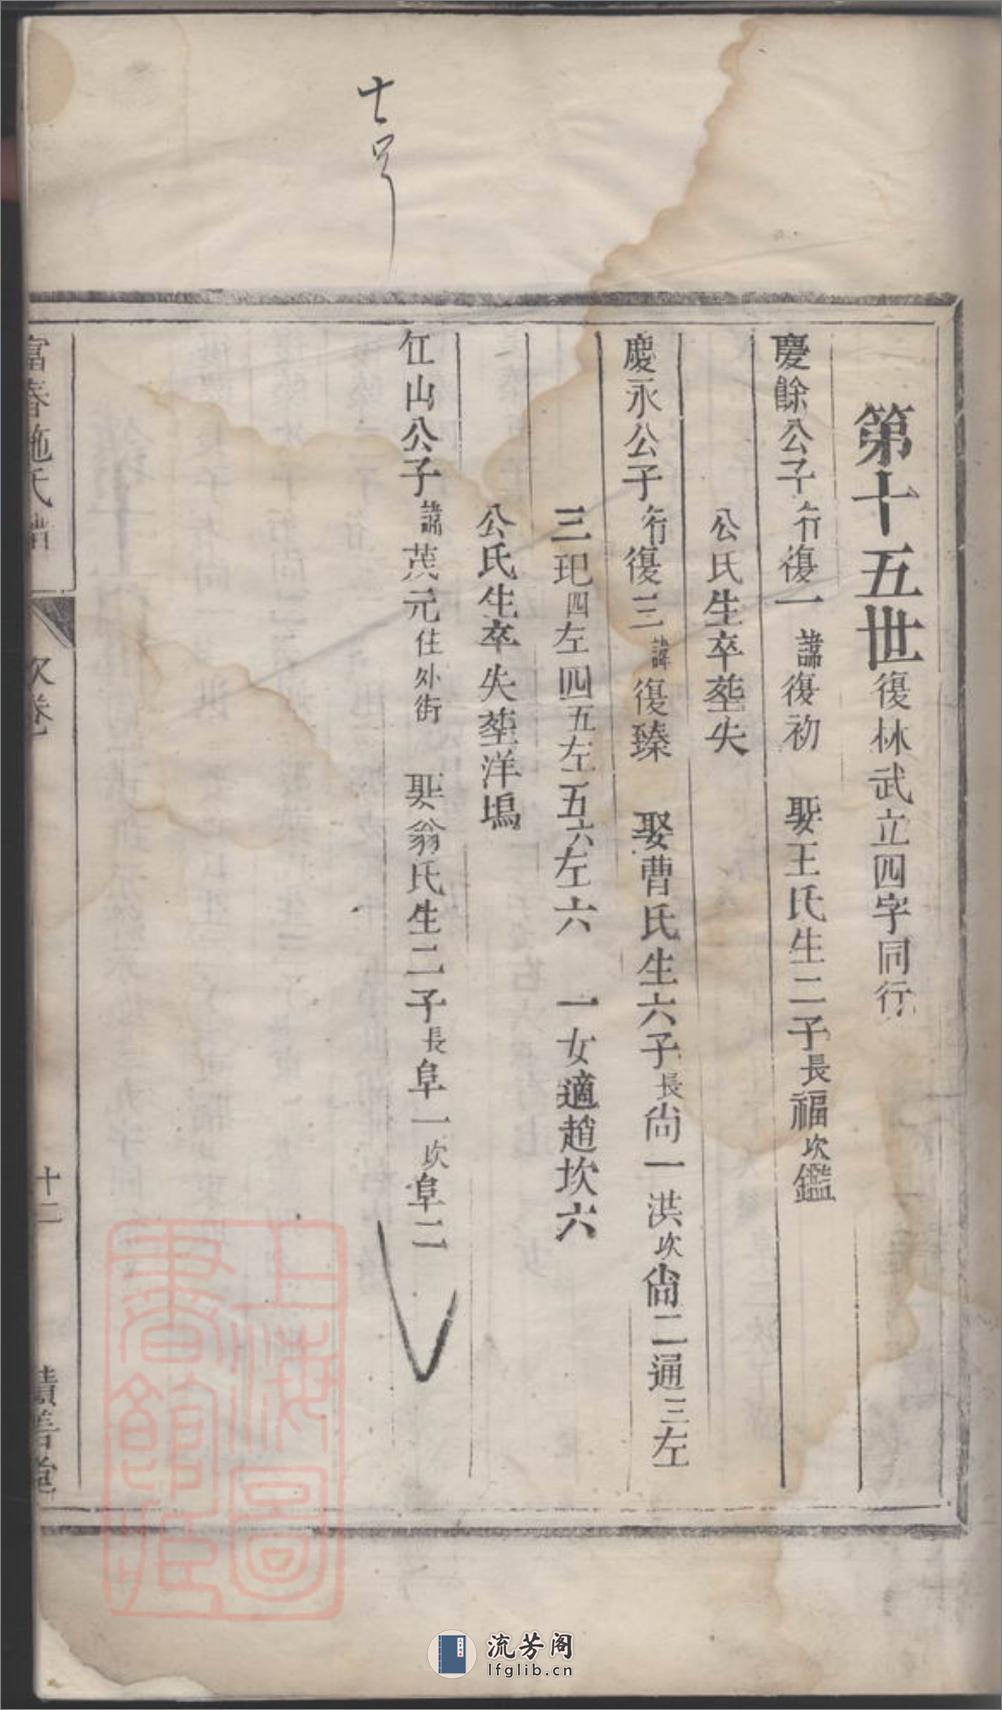 十号
第十五世復林武立四字同行
慶餘公子行復一諱復初 娶王氏生二子長福次鑑
公氏生卒塟失
慶永公子行復三諱復臻 娶曹氏生六子長尙一洪次尙二通三左
三玘四左四五左五六左六 一女適趙坎六
公氏生卒失塟洋塢
仜山公子諱茂元住外街 娶翁氏生二子長阜一次阜二
富春施氏譜 次卷 十二 積善堂
上海圖書館藏
流芳阁
lfglib.cn